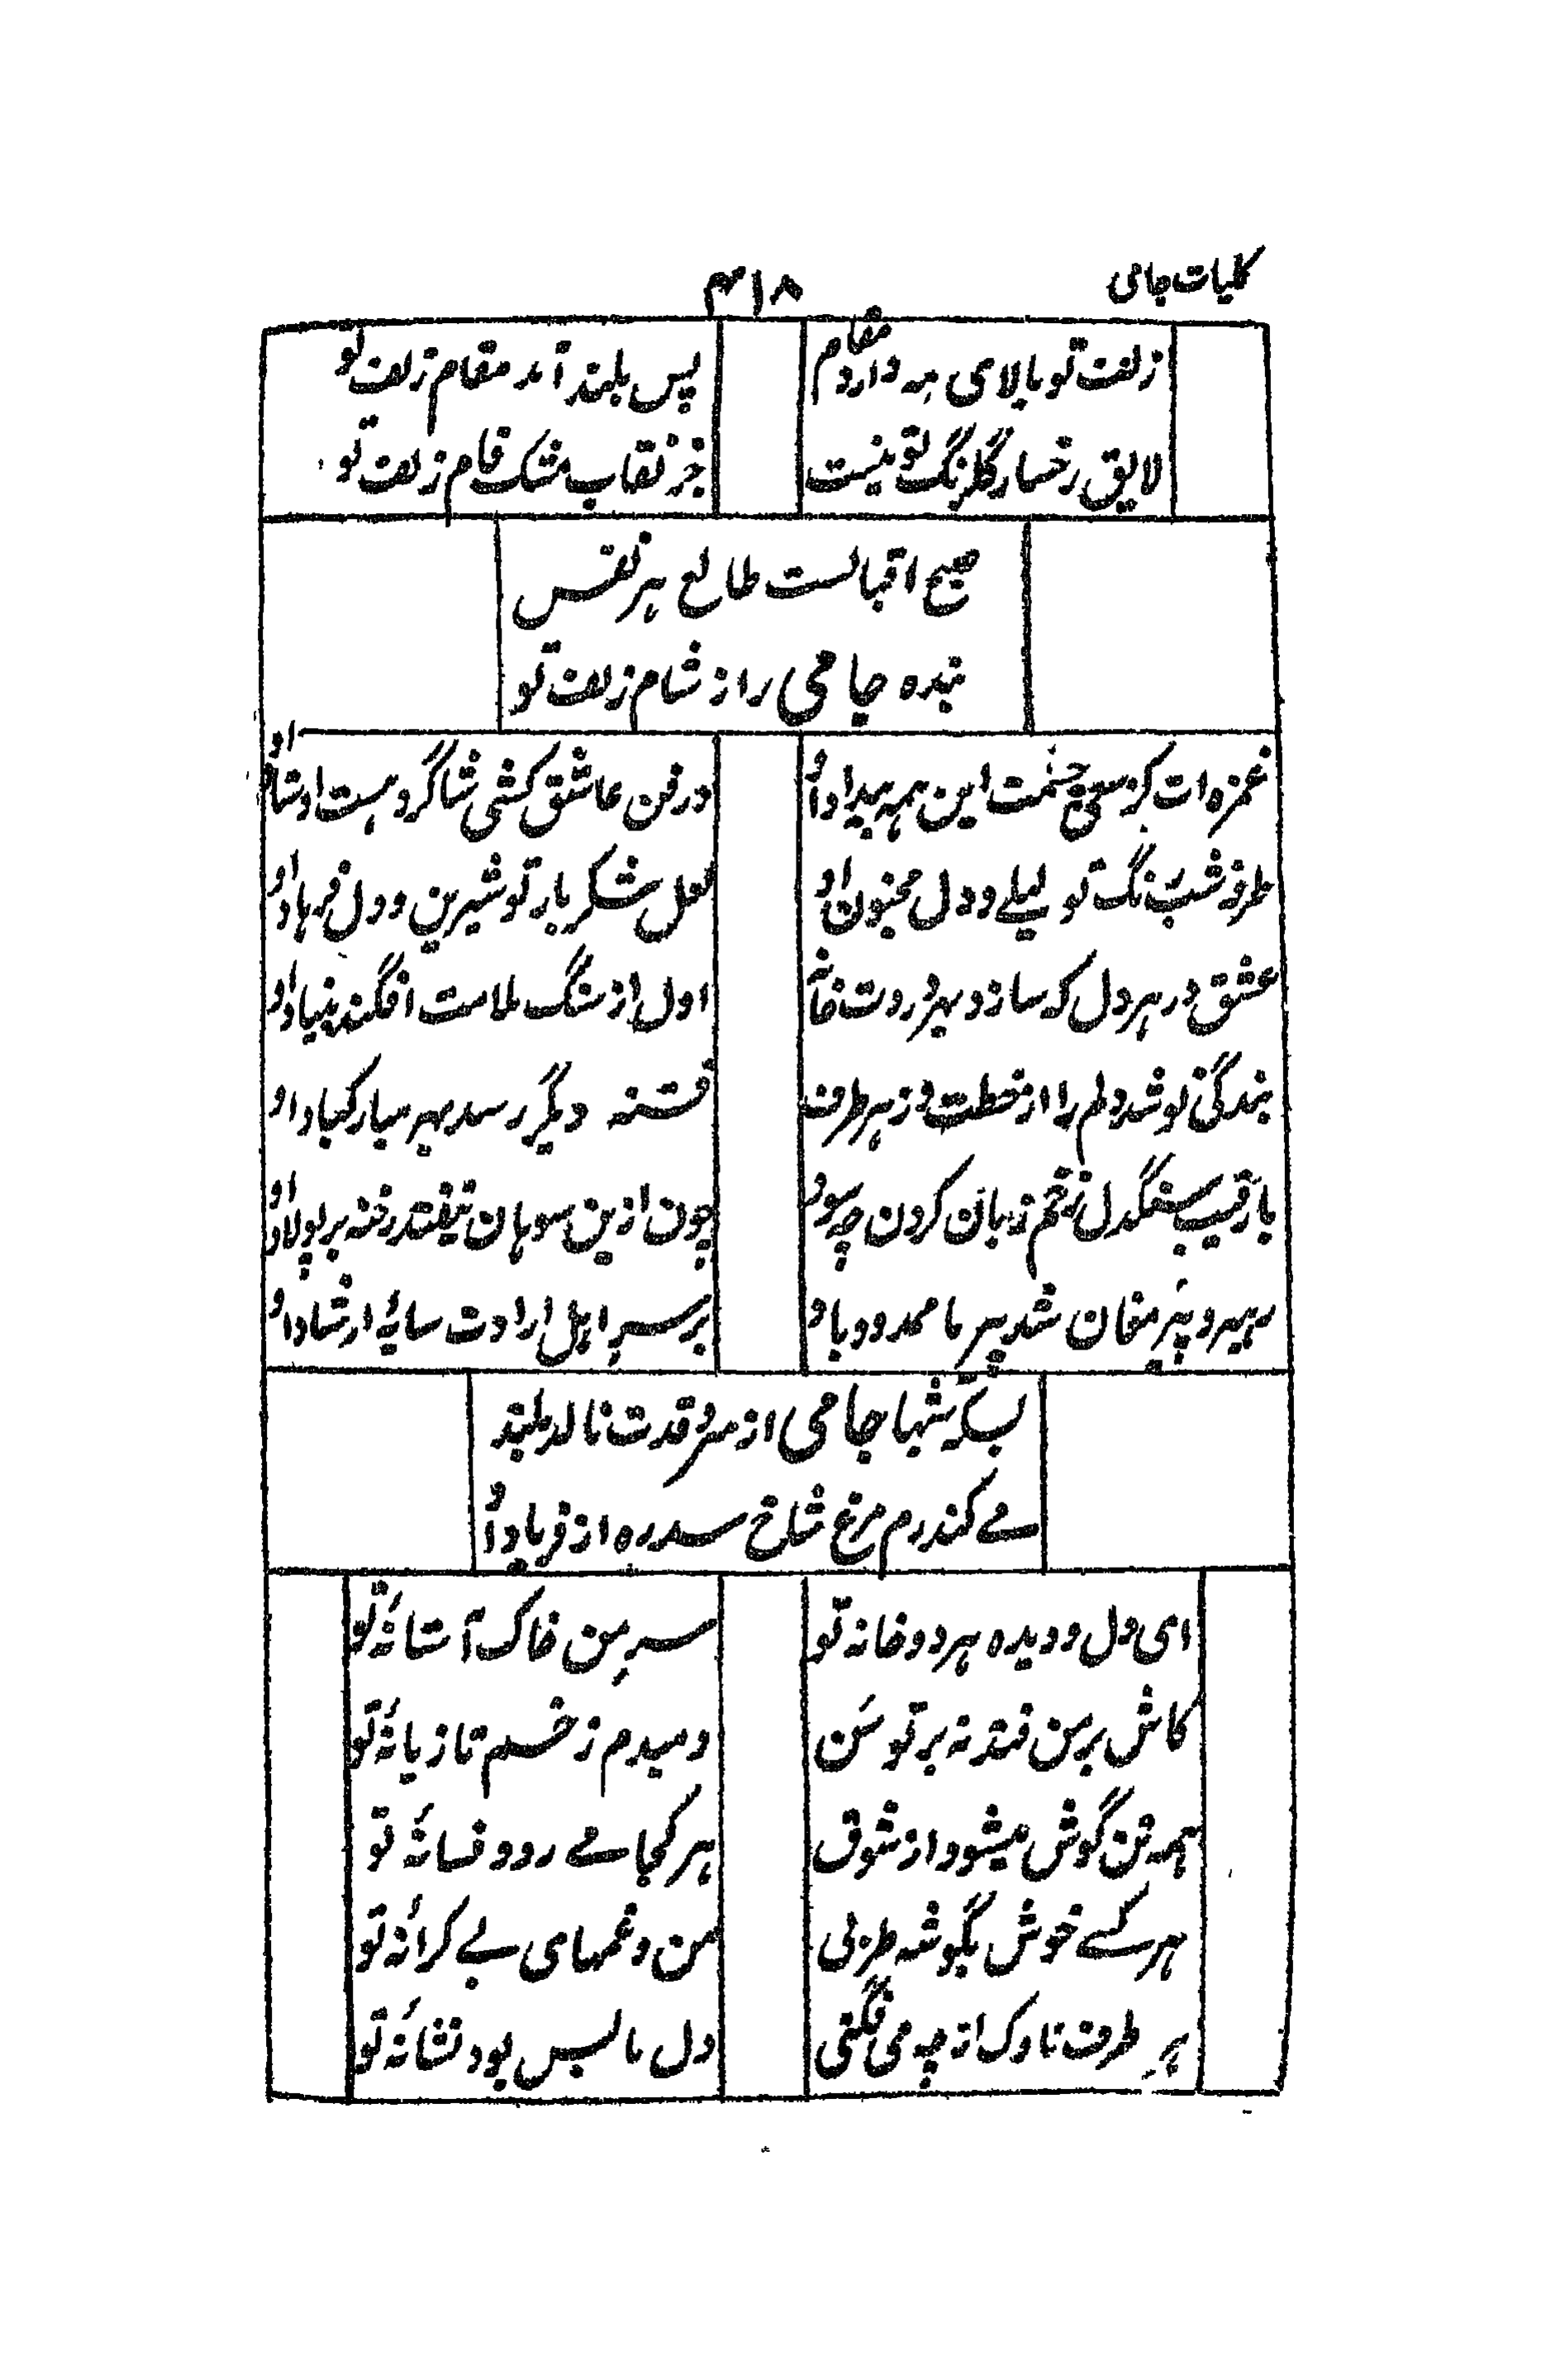 کلیات جامی
۴۱۸
زلف تو بالای مه دارد مقام
پس بلند آمد مقام زلف تو
لایق رخسار گلرنگ تو نیست
جز نقاب مشک فام زلف تو
صبح اقبالست طالع هر نفس
بنده جامی را ز شام زلف تو
غمزه ات کز سحر چشمت این همه بیداد او
در فن عاشق کشی شاگرد هست اوستاد او
طره شبرنگ تو لیلے و دل مجنون او
لعل شکر بار تو شیرین و دل فرهاد او
عشق در هر دل که سازد بهر دردت خانه
اول از سنگ ملامت افگند بنیاد او
بندگی نو شد دلم را از خطت وز هر طرف
فتنه دیگر رسد بهر مبارکباد او
با رقیب سنگدل زخم زبان کردن چه سود
چون ازین سوهان نیفتد رخنه بر پولاد او
رهبر و پیر مغان شد پیر ما ممدود باد
بر سر اهل ارادت سایۀ ارشاد او
بسکه شبها جامی از سرو قدت نالد بلند
مے کند رم مرغ شاخ سدره از فریاد او
ای دل و دیده هر دو خانه تو
سر من خاک آستانۀ تو
کاش بر من فتد نه بر توسن
دمبدم زخم تازیانۀ تو
همه تن گوش میشود از شوق
هر کجا مے رود فسانۀ تو
هر کسے خوش بگوشه طربی
من و غمهای بے کرانۀ تو
هر طرف ناوک از چه می فگنی
دل ما بس بود نشانۀ تو